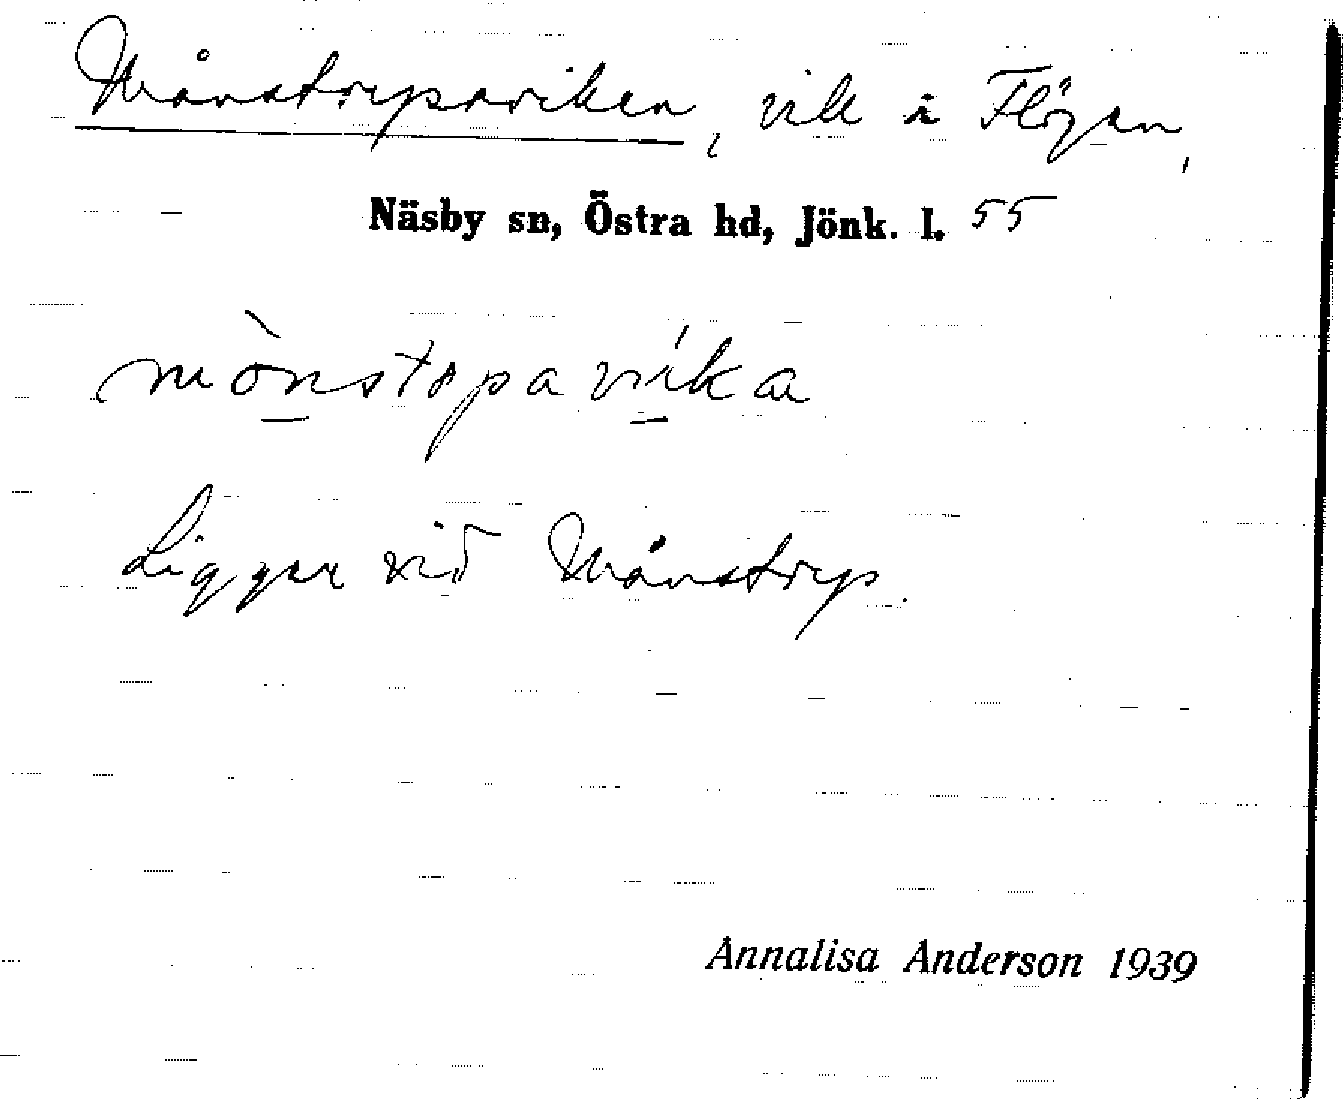 Månstorpaviken, vik i Flögen,
Näsby sn, Östra hd, Jönk. l. 55
mò̱nstopaví̱ka
Ligger vid Månstorp.
Annalisa Anderson 1939